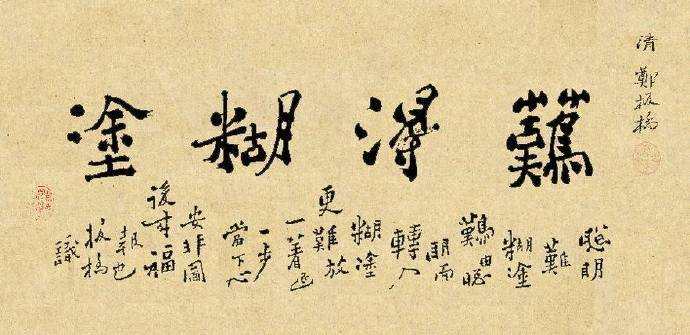 清 鄭板橋
難得糊塗
聰明
難
糊塗
難由聰
明而
轉入
糊塗
更難放
一著退
一步
當下心
安非圖
後來福
報也
板橋
識